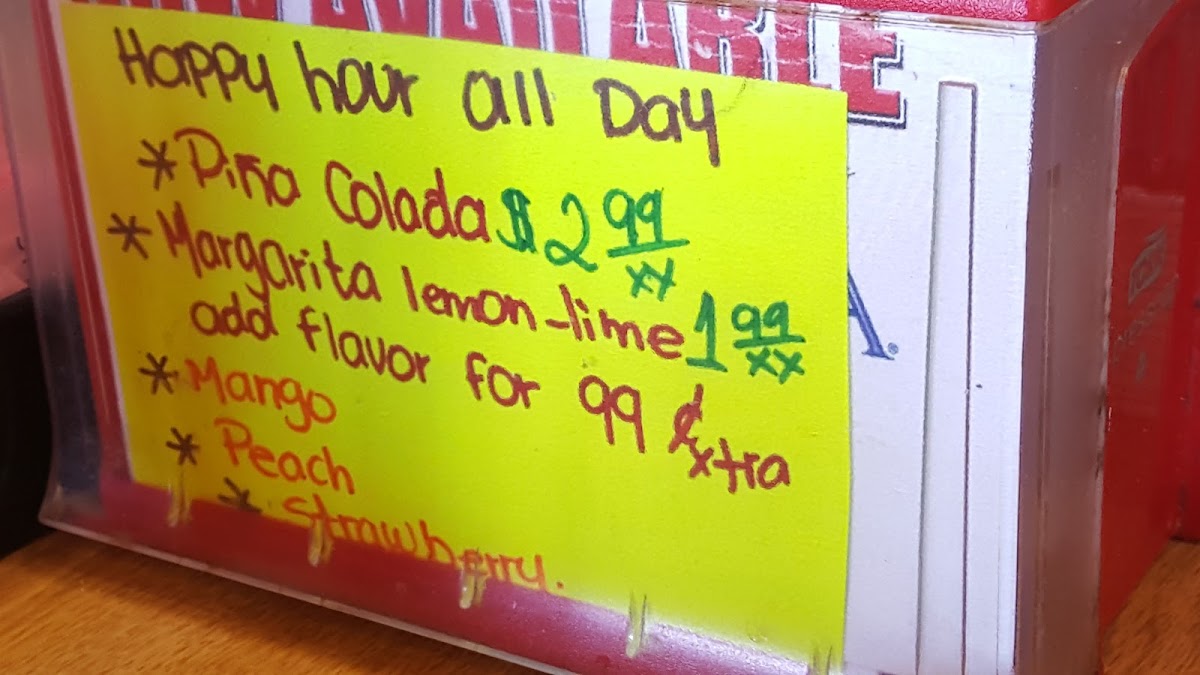 AVAILABLE
Happy hour all Day
* Piña Colada $2 99/xx
* Margarita lemon-lime 1 99/xx
add flavor for 99 ¢ xtra
* Mango
* Peach
* Strawberry.
A®